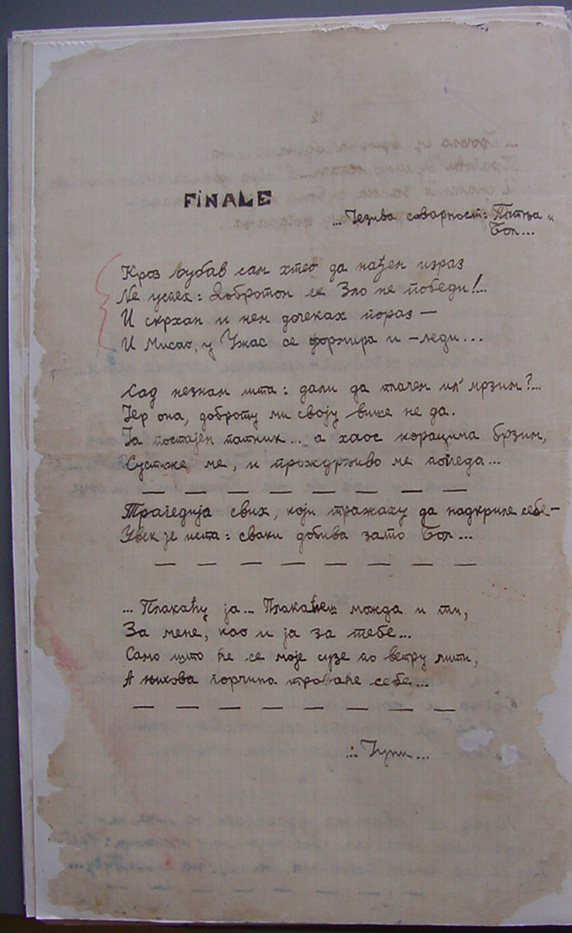 FINALE
... Језива стварност: Патња и
Бол...
Кроз љубав сам хтео да нађем израз
Не успех: Добротом се Зло не победи!...
И скрхан и нем дочеках пораз —
И Мисао, у Ужас се формира и – леди...
Сад незнам шта: дали да плачем ил' мрзим?...
Јер она, доброту ми своју више не да.
Ја постајем патник... а хаос корацима брзим,
Сустиже ме, и прождрљиво ме погледа...
Трагедија свих, који тражаху да надкриле себе –
Увек је иста: сваки добива зато Бол...
... Плакаћу ја... Плакаћеш можда и ти,
За мене, као и ја за тебе...
Само што ће се моје сузе по ветру лити,
А њихова горчина троваће себе...